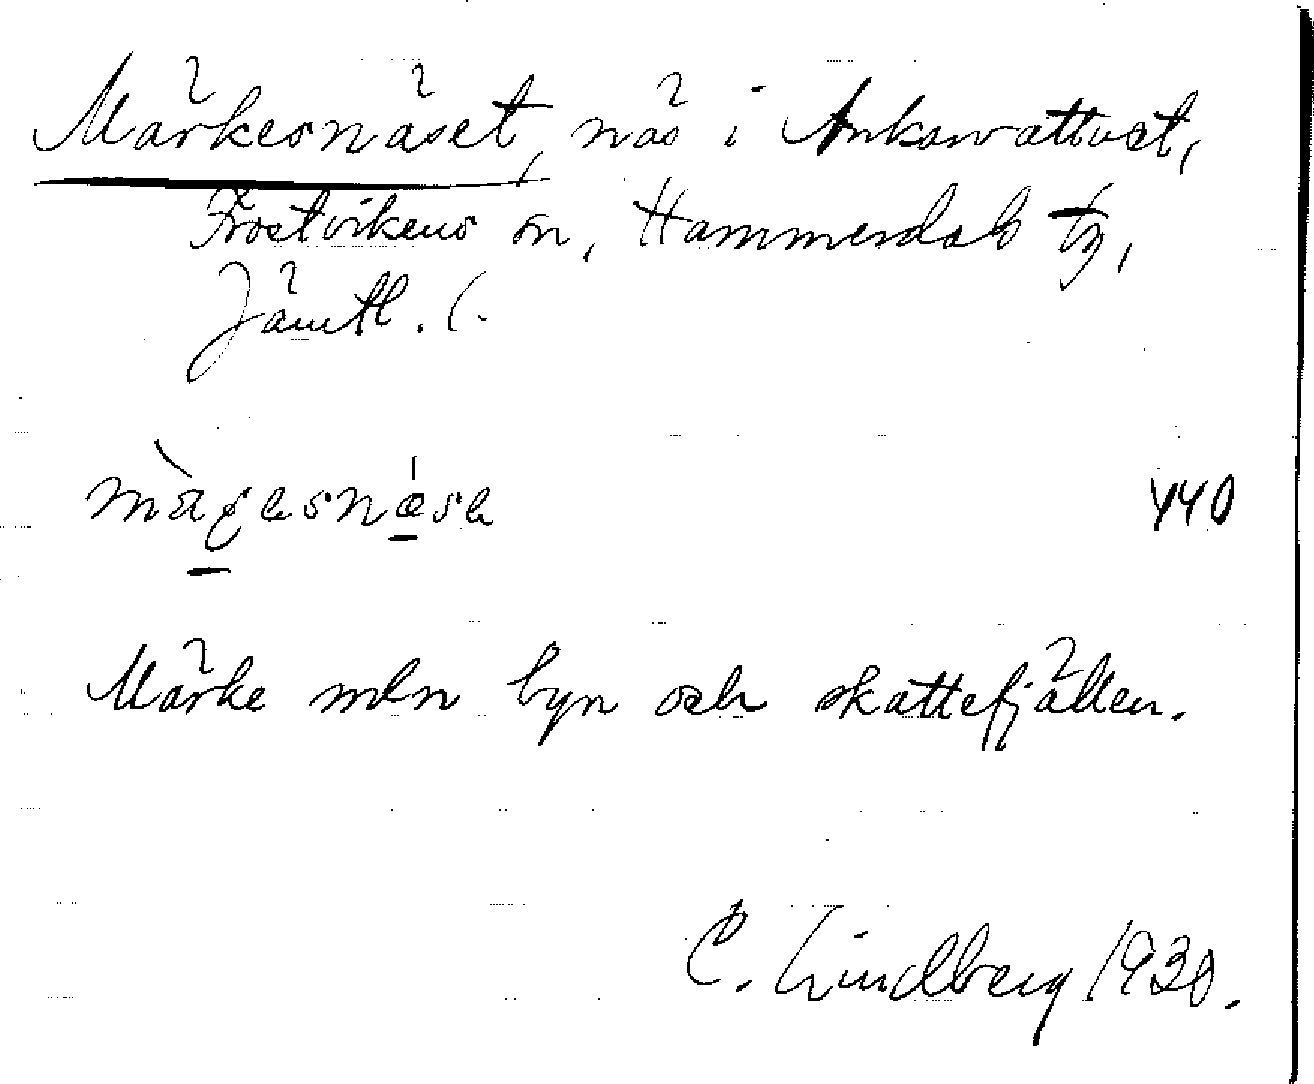 Märkesnäset, näs i Ankarvattnet,
Frostvikens sn, Hammerdals tg,
Jämtl. l.
440
Märke mln byn och skattefjällen.
C. Lindberg 1930.